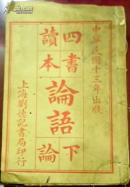 中華民國十三年出版
四書讀本
論語 下論
上海劉德記書局印行